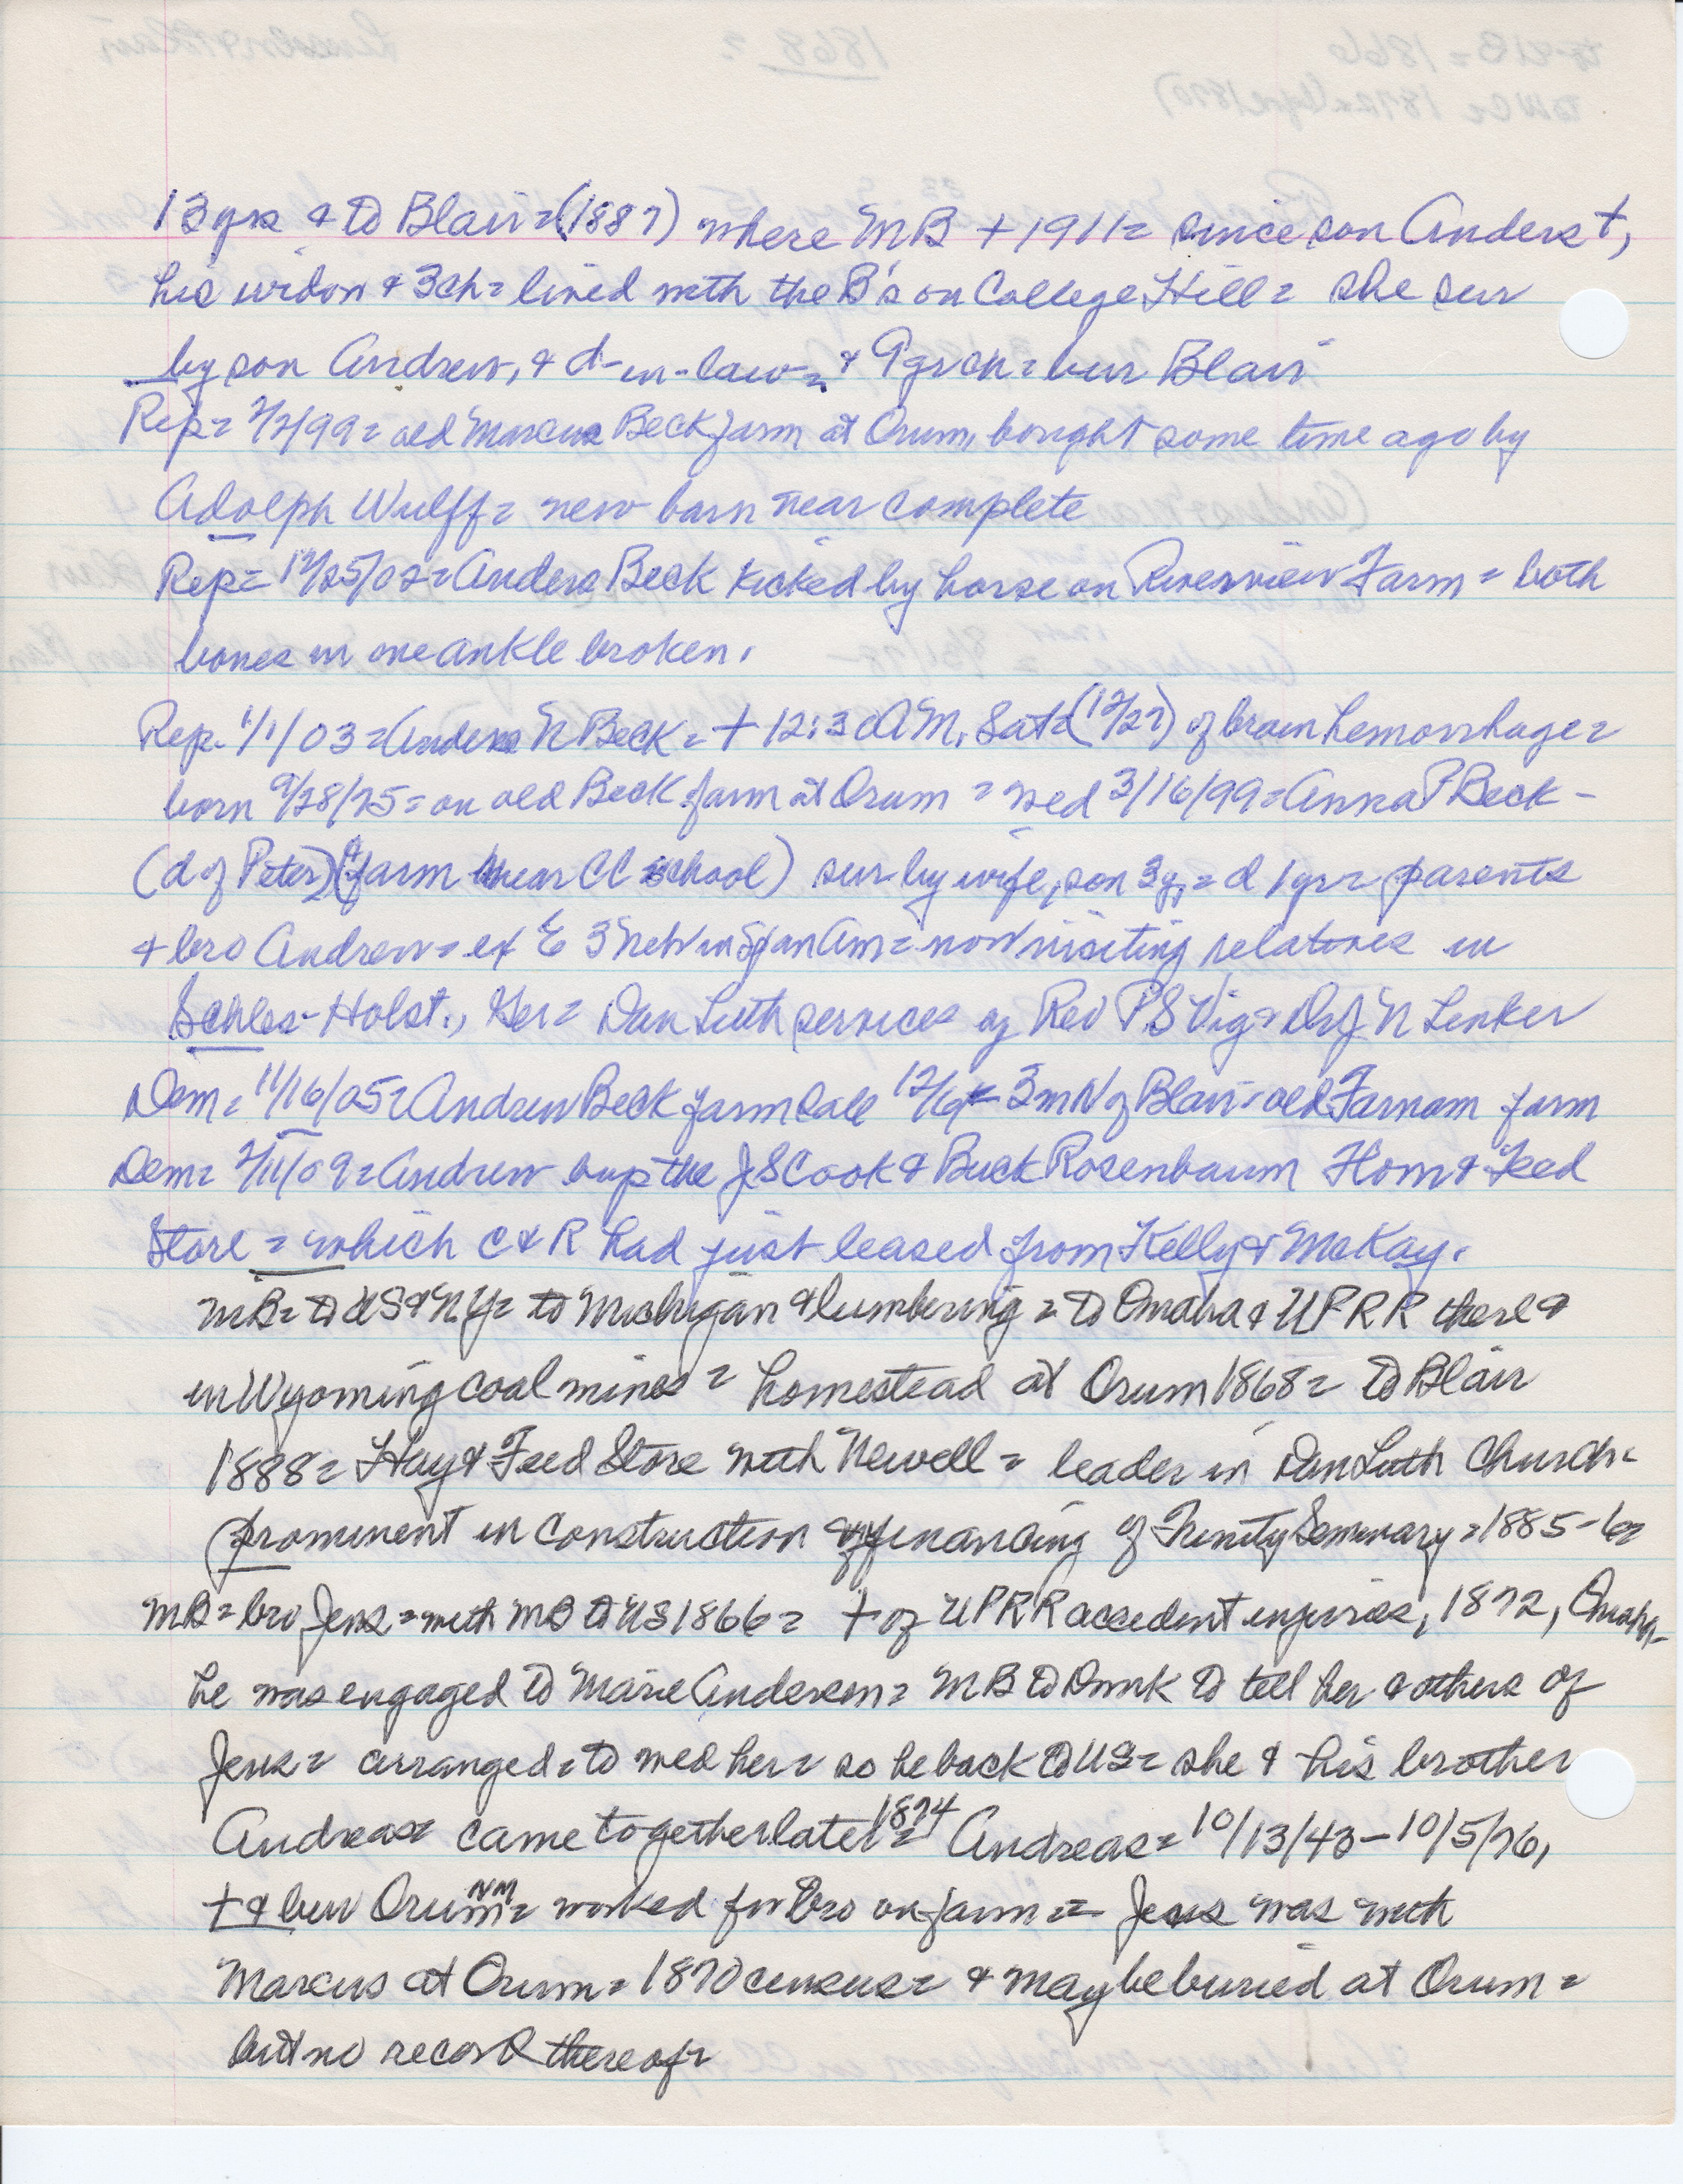 13 yrs & to Blair = (1887) where MB + 1911 = since son Anders +,
his widow & 3 ch = lived with the B's on College Hill = she sur
by son Andrew, & d-in-law = & 9 grch = bur Blair
Rep = 2/2/99 = old Marcus Beck farm at Orum, bought some time ago by
Adolph Wulff = new barn near complete
Rep = 12/25/02 = Anders Beck kicked by horse on Riverview Farm = both
bones in one ankle broken.
Rep. 1/1/03 = Anders N Beck = + 12:30 AM, Satd (12/27) of brain hemorrhage =
born 9/28/75 = on old Beck farm at Orum = wed 3/16/99 = Anna P Beck -
(d of Peter) (farm near CC school) sur by wife, son 3y, = d 1 yr = parents
& bro Andrew = ex E 3 Neb in Span Am = now visiting relatives in
Schles-Holst., Ger = Dan Luth services by Rev P S Vig = Dr J N Lenker
Dem = 11/16/05 = Andrew Beck farm sale 12/6 = 3m N of Blair = old Farnam farm
Dem = 2/11/09 = Andrew buys the J S Cook & Buck Rosenbaum Flour & Feed
Store = which C & R had just leased from Kelly & McKay.
MB = to US & NY = to Michigan & lumbering = to Omaha & UPRR there &
in Wyoming coal mines = homestead at Orum 1868 = to Blair
1888 = Hay & Feed Store with Newell = leader in Dan Luth Church -
prominent in construction & financing of Trinity Seminary = 1885-6 =
MB = bro Jens = with MB to US 1866 = + of UPRR accident injuries, 1872, Omaha -
he was engaged to Marie Andersen = MB to Dnmk to tell her & others of
Jens = arranged = to wed her = so he back to US = she & his brother
Andreas = came together later = 1874 Andreas = 10/13/43 - 10/5/76,
+ & bur Orum = NM = worked for bro on farm = Jens was with
Marcus at Orum = 1870 census = & may be buried at Orum =
but no record thereof =